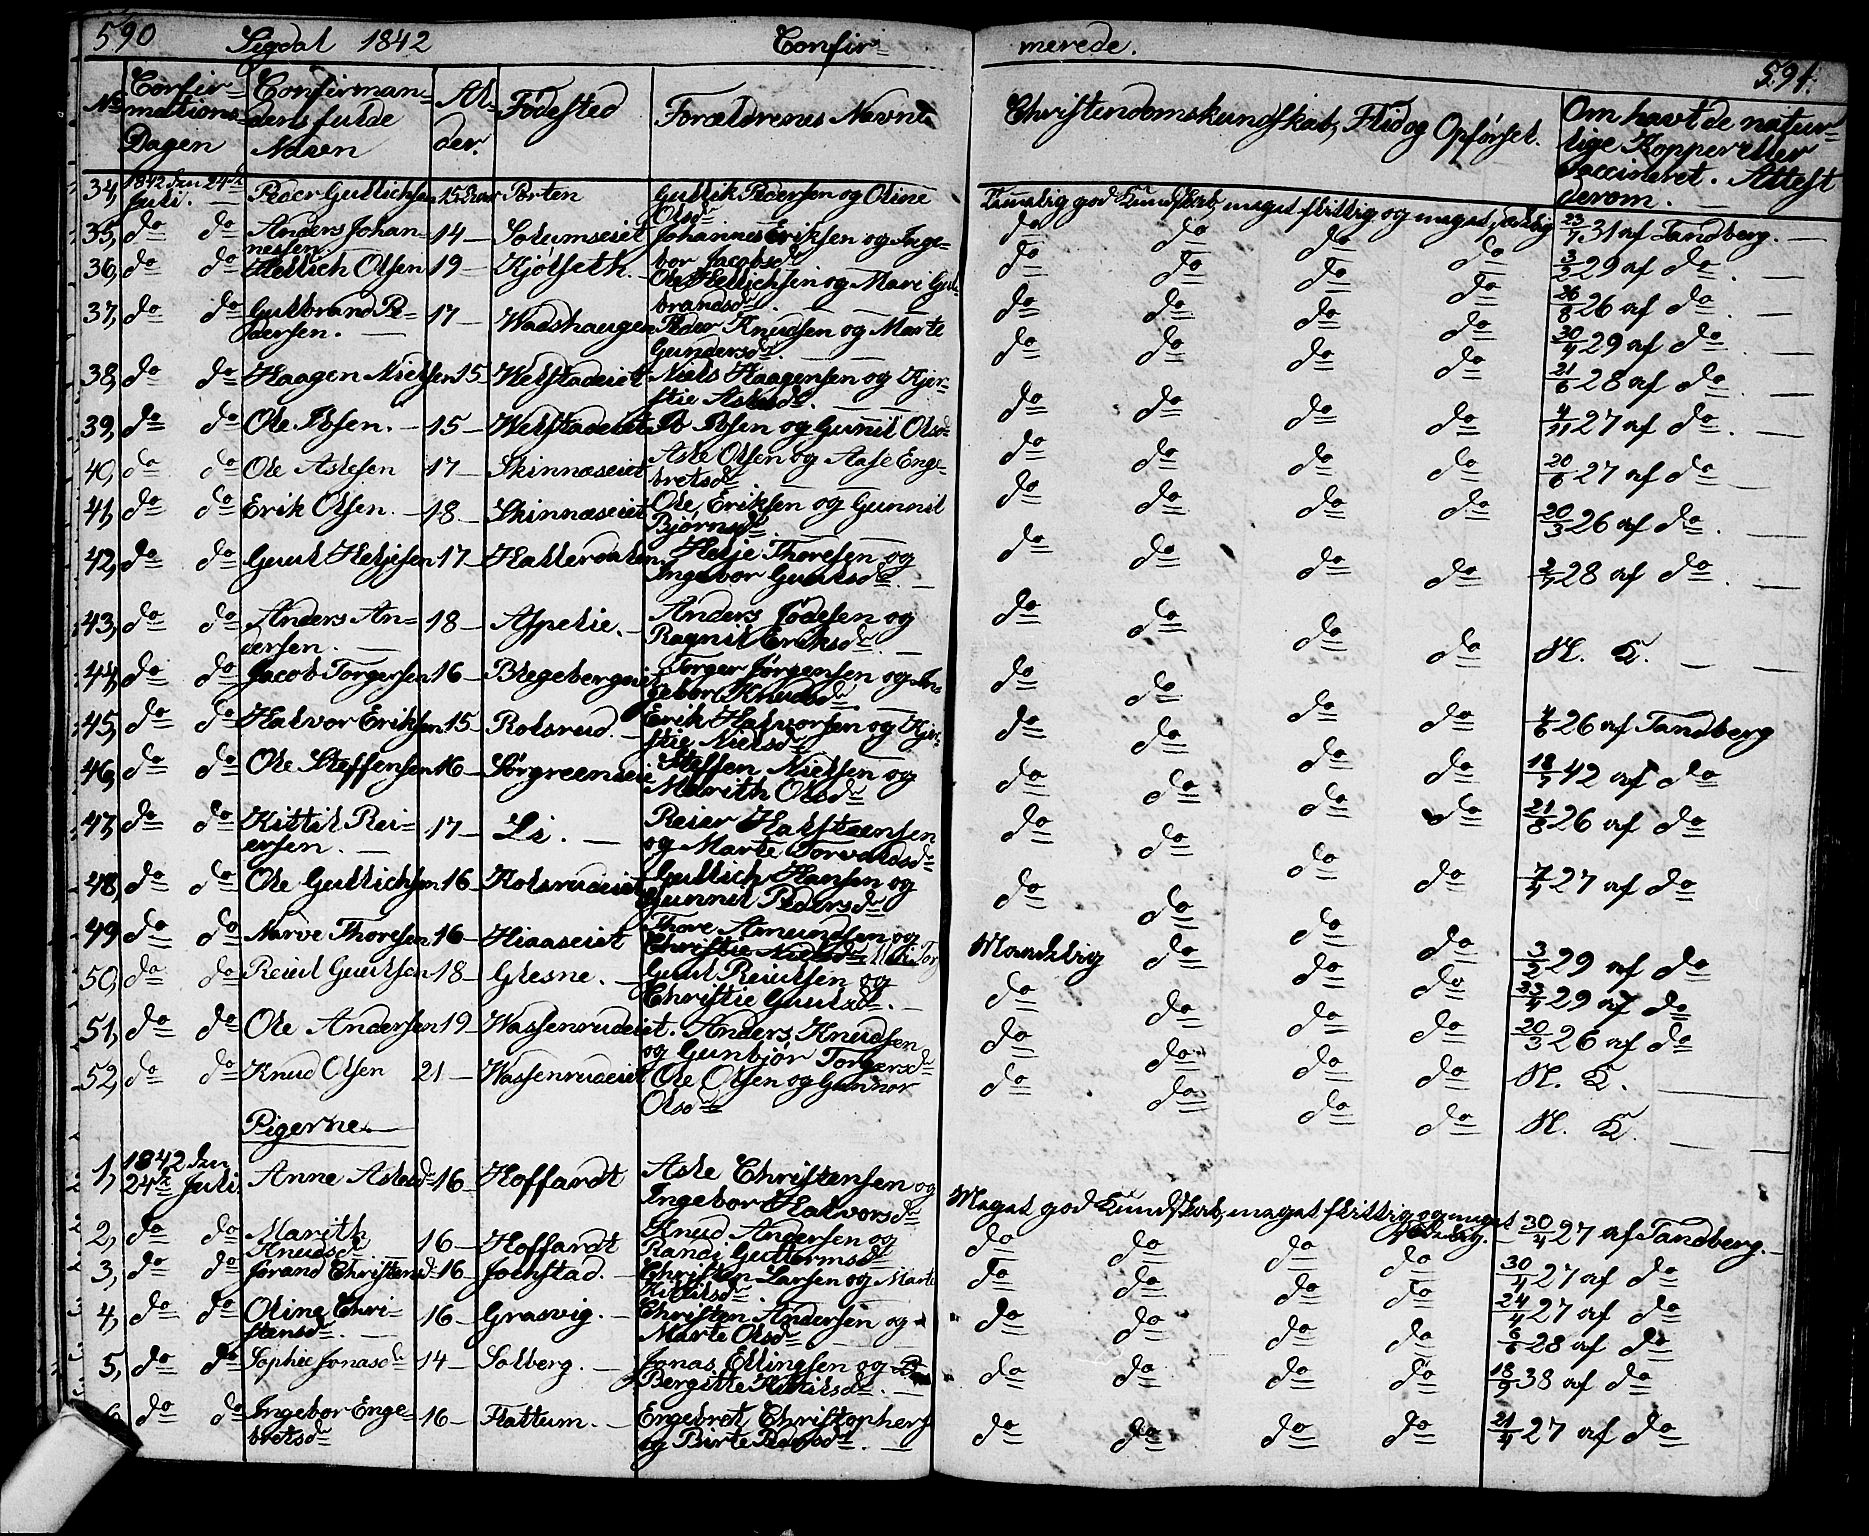 590 Sigdal 1842 Confir=
merede. 591.
No Confir=mations Dagen | Confirman=dens fulde Navn | Al=der. | Fødested | Forældrenes Navne | Christendomskundskab, Flid og Opførsel. | Om havt de natur=lige Kopper eller vaccineret. Attest derom.
34, 1842 den 24de Juli. Peder Gullichsen 15 Porten Gullik Pedersen og Oline Olsdr Temmelig god Kundskab, meget flittig og meget 23/7 31 af Tandberg.
35, do do Anders Johan=nessen. 14 Solumseiet Johannes Eriksen og Inge=bor Jacobsdr do do do do 3/2 29 af do.
36, do do Hellich Olsen 19 Kjølseth. Ole Hellichsen og Mari Gul=brandsdr do do do do 26/8 26 af do.
37, do do Gulbrand Pe=dersen. 17 Wadshaugen Peder Knudsen og Marte Gundersdr. do do do do 30/4 29 af do.
38, do do Haagen Nielsen 15 Welstadeiet Niels Haagensen og Kjer=stie Aslesdr. do do do do 21/6 28 af do.
39, do do Ole Ibsen. 15 Welstadeiet Ib Ibsen og Gunil Olsdr do do do do 4/11 27 af do.
40, do do Ole Aslesen 17 Skinnæseiet Asle Olsen og Aase Enge=bretsdr do do do do 20/6 27 af do
41, do do Erik Olsen. 18 Skinnæseiet Ole Eriksen og Gunnil Bjørnsdr. do do do do 20/3 26 af do.
42, do do Guul Heljesen 17 Hallerdalen Helje Thoresen og Ingebor Guulsdr. do do do do 2/7 28 af do.
43, do do Anders An=dersen. 18 Aspelie. Anders Jødesen og Ragnil Eriksdr. do do do do N. K.
44, do do Jacob Torgersen 16 Blegebergeiet Torger Jørgensen og In=gebor Knudsdr. do do do do 4/6 26 af Tandberg
45, do do Halvor Eriksen 15 Rolsrud. Erik Halvorsen og Kjer=stie Nielsdr do do do do 18/7 42 af do
46, do do Ole Steffensen 16 Sørgreeneneie Steffen Nielsen og Marith Olsdr do do do do 21/8 26 af do
47, do do Kittil Rei=ersen. 17 Li. Reier Halsteensen og Marte Torvaldsdr do do do do 7/4 27 af do
48, do do Ole Gullichsen 16 Kolsrudeiet Gullich Hansen og Gunnil Pedersdr do do do do
49 do do Narve Thoresen 16 Hiaaseiet Thore Amundsen og Christie Nielsdr Maadelig do do do 3/2 29 af do
50, do do Reiul Guulsen 18 Glesne. Guul Reiulsen og Christie Guulsdr. do do do do 23/4 29 af do
51, do do Ole Andersen 19 Wassenrudeiet. Anders Knudsen og Gunbjør Torgersdr do do do do 20/3 26 af do
52, do do Knud Olsen 21 Wassenrudeiet Ole Olsen og Gunnor Olsdr do do do do N. K.
do do N. K.
Pigerne.
1, 1842 den 24de Juli Anne Aslesdr 16 Hoffardt Asle Christensen og Ingebor Halvorsdr Meget god Kundskab, meget flittig og meget sædelig. 30/4 27 af Tandberg.
2, do do Marith Knudsdr 16 Hoffardt Knud Andersen og Randi Guttormsdr do do do do 30/4 27 af do
3, do do Jørand Christensdr 16 Jochstad. Christen Larsen og Marte Kittilsdr. do do do do 24/4 27 af do
4, do do Oline Chri=stensdr. 16 Grasvig. Christen Andersen og Marte Olsdr do do do do 6/6 28 af do
5, do do Sophie Jonasdr 14 Solberg. Jonas Ellingsen og Bergitte Kittilsdr. do do do do 18/9 38 af do
6 do do Ingebor Enge=bretsdr 16 Flattum. Engebret Christophers og Birte Pedersdr. do do do do 21/4 27 af do